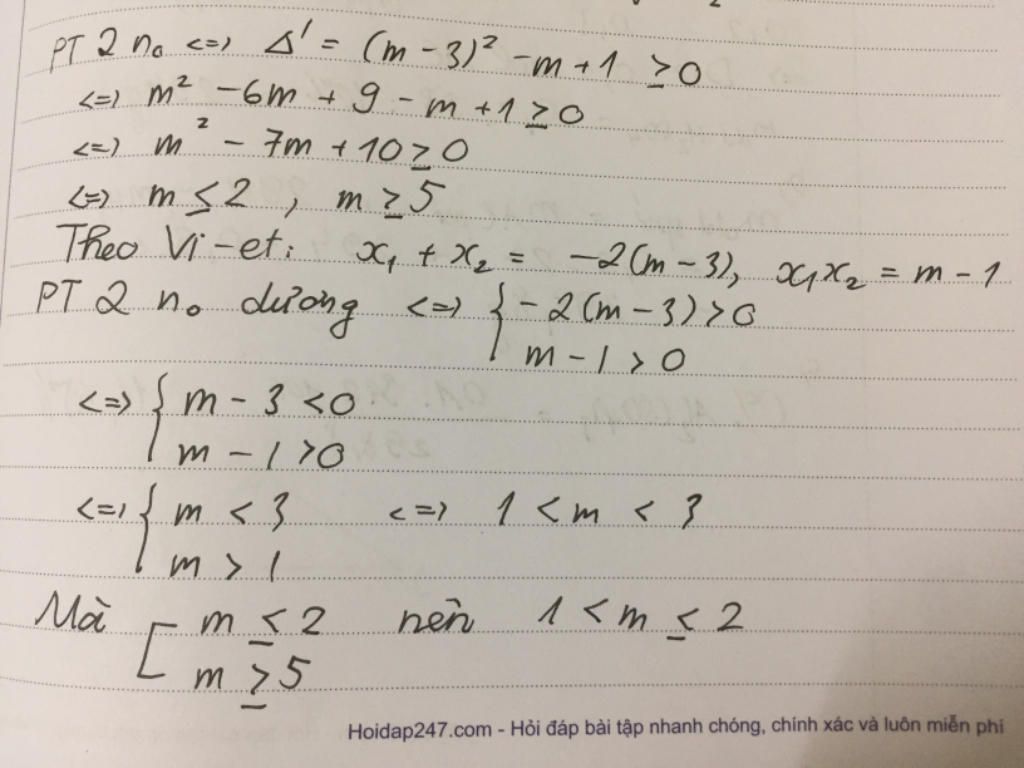 PT 2 n₀ <=> Δ' = (m - 3)² - m + 1 ≥ 0
<=> m² - 6m + 9 - m + 1 ≥ 0
<=> m² - 7m + 10 ≥ 0
<=> m ≤ 2 , m ≥ 5
Theo Vi-et: x₁ + x₂ = -2(m - 3), x₁x₂ = m - 1
PT 2 n₀ dương <=> { - 2(m - 3) > 0
m - 1 > 0
<=> { m - 3 < 0
m - 1 > 0
<=> { m < 3 <=> 1 < m < 3
m > 1
Mà [ m ≤ 2 nên 1 < m ≤ 2
m ≥ 5
Hoidap247.com - Hỏi đáp bài tập nhanh chóng, chính xác và luôn miễn phí